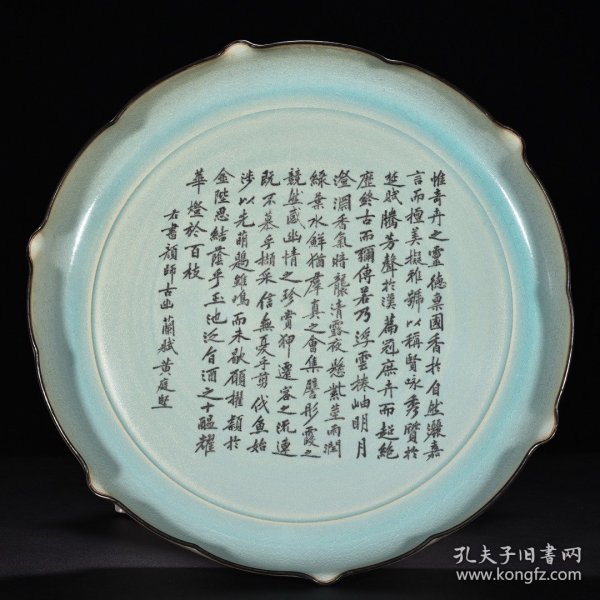 惟奇卉之靈德稟國香於自然灑嘉
言而擅美擬雅號以稱賢咏秀賢於
楚賦騰芳聲於漢篇冠庶卉而超絶
歷終古而彌傳若乃浮雲捲岫明月
澄澗香氣時襲清露夜懸紫莖雨潤
綠葉水鮮猶羣真之會集譬彤霞之
競然感幽情之珍賞狎遷客之流連
既不慕乎擷采信無憂乎剪伐魚始
涉以先萌鶗雖鳴而未歇願擢穎於
金陛思結蔭乎玉池泛旨酒之十醞耀
華燈於百枝
右書顔師古幽蘭賦黄庭堅
孔夫子旧書网
www.kongfz.com